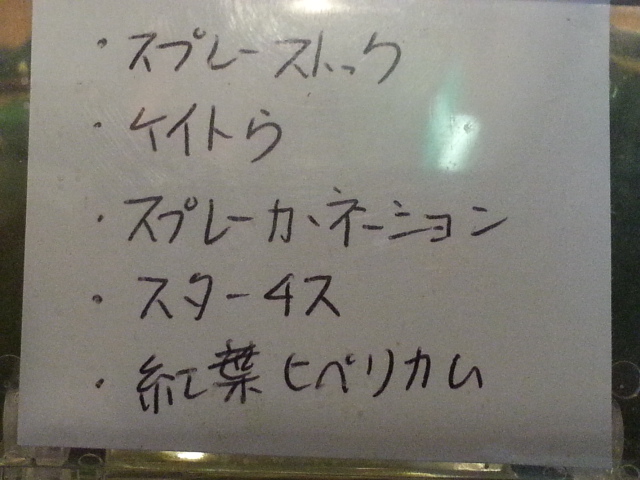 ・スプレーストック
・ケイトウ
・スプレーカーネーション
・スターチス
・紅葉ヒペリカム